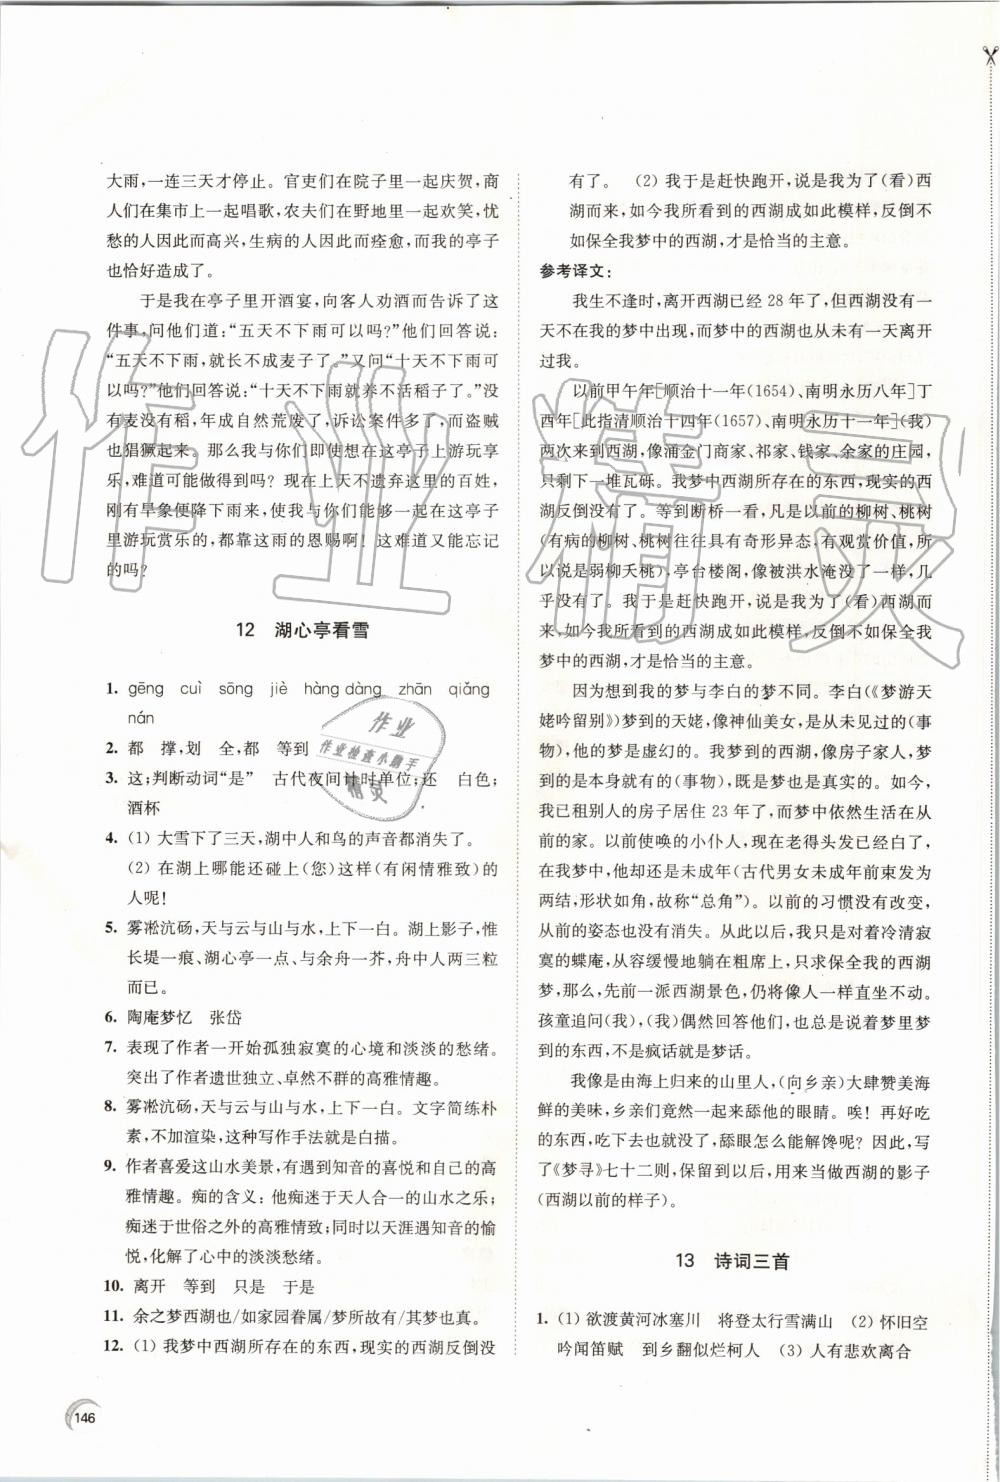 大雨,一连三天才停止。官吏们在院子里一起庆贺,商
人们在集市上一起唱歌,农夫们在野地里一起欢笑,忧
愁的人因此而高兴,生病的人因此而痊愈,而我的亭子
也恰好造成了。
于是我在亭子里开酒宴,向客人劝酒而告诉了这
件事,问他们道:“五天不下雨可以吗?”他们回答说:
“五天不下雨,就长不成麦子了。”又问“十天不下雨可
以吗?”他们回答说:“十天不下雨就养不活稻子了。”
没有麦没有稻,年成自然荒废了,诉讼案件多了,而盗贼
也猖獗起来。那么我与你们即使想在这亭子上游玩享
乐,难道可能做得到吗?现在上天不遗弃这里的百姓,
刚有旱象便降下雨来,使我与你们能够一起在这亭子
里游玩赏乐的,都靠这雨的恩赐啊!这难道又能忘记
的吗?
12 湖心亭看雪
1. gēng cuì sōng jiè hàng dàng zhān qiǎng
nán
2. 都 撑,划 全,都 等到
3. 这;判断动词“是” 古代夜间计时单位;还 白色;
酒杯
4. (1) 大雪下了三天,湖中人和鸟的声音都消失了。
(2) 在湖上哪能还碰上(您)这样(有闲情雅致)的
人呢!
5. 雾凇沆砀,天与云与山与水,上下一白。湖上影子,惟
长堤一痕、湖心亭一点、与余舟一芥,舟中人两三粒
而已。
6. 陶庵梦忆 张岱
7. 表现了作者一开始孤独寂寞的心境和淡淡的愁绪。
突出了作者遗世独立、卓然不群的高雅情趣。
8. 雾凇沆砀,天与云与山与水,上下一白。文字简练朴
素,不加渲染,这种写作手法就是白描。
9. 作者喜爱这山水美景,有遇到知音的喜悦和自己的高
雅情趣。痴的含义:他痴迷于天人合一的山水之乐;
痴迷于世俗之外的高雅情致;同时以天涯遇知音的愉
悦,化解了心中的淡淡愁绪。
10. 离开 等到 只是 于是
11. 余之梦西湖也/如家园眷属/梦所故有/其梦也真。
12. (1) 我梦中西湖所存在的东西,现实的西湖反倒没
146
有了。 (2) 我于是赶快跑开,说是我为了(看)西
湖而来,如今我所看到的西湖成如此模样,反倒不
如保全我梦中的西湖,才是恰当的主意。
参考译文:
我生不逢时,离开西湖已经 28 年了,但西湖没有一
天不在我的梦中出现,而梦中的西湖也从未有一天离开
过我。
以前甲午年[顺治十一年(1654)、南明永历八年]丁
酉年[此指清顺治十四年(1657)、南明永历十一年](我)
两次来到西湖,像涌金门商家、祁家、钱家、余家的庄园,
只剩下一堆瓦砾。我梦中西湖所存在的东西,现实的西
湖反倒没有了。等到断桥一看,凡是以前的柳树、桃树
(有病的柳树、桃树往往具有奇形异态,有观赏价值,所
以说是弱柳夭桃)、亭台楼阁,像被洪水淹没了一样,几
乎没有了。我于是赶快跑开,说是我为了(看)西湖而
来,如今我所看到的西湖成如此模样,反倒不如保全我
梦中的西湖,才是恰当的主意。
因为想到我的梦与李白的梦不同。李白(《梦游天
姥吟留别》)梦到的天姥,像神仙美女,是从未见过的(事
物),他的梦是虚幻的。我梦到的西湖,像房子家人,梦
到的是本身就有的(事物),梦也是真实的。如今,
我已租别人的房子居住 23 年了,而梦中依然生活在从
前的家。以前使唤的小仆人,现在老得头发已经白了,
在我梦中,他还是未成年(古代男女未成年前束发为
两结,形状如角,故称“总角”)。以前的习惯没有改变,
从前的姿态也没有消失。从此以后,我只是对着冷清寂
寞的蝶庵,从容缓慢地躺在粗席上,只求保全我的西湖
梦,那么,先前一派西湖景色,仍将像人一样直坐不动。
孩童追问(我),(我)偶然回答他们,也总是说着梦里梦
到的东西,不是疯话就是梦话。
我像是由海上归来的山里人,(向乡亲)大肆赞美海
鲜的美味,乡亲们竟然一起来舔他的眼睛。唉!再好吃
的东西,吃下去就没有了,舔眼怎么能解馋呢?因此,写
了《梦寻》七十二则,保留到以后,用来当做西湖的影子
(西湖以前的样子)。
13 诗词三首
1. (1) 欲渡黄河冰塞川 将登太行雪满山 (2) 怀旧空
吟闻笛赋 到乡翻似烂柯人 (3) 人有悲欢离合
作业精灵
作业
作业检查小助手
精灵